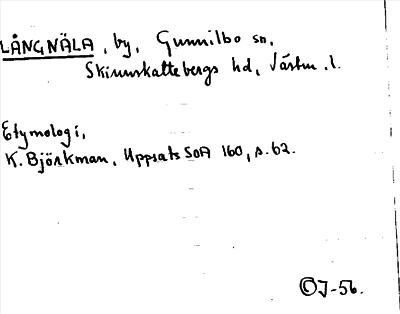 LÅNGNÄLA, by, Gunnilbo sn,
Skinnskattebergs hd, Västm. l.
Etymologi,
K. Björkman, Uppsats SOA 160, s. 62.
ⒸJ-56.